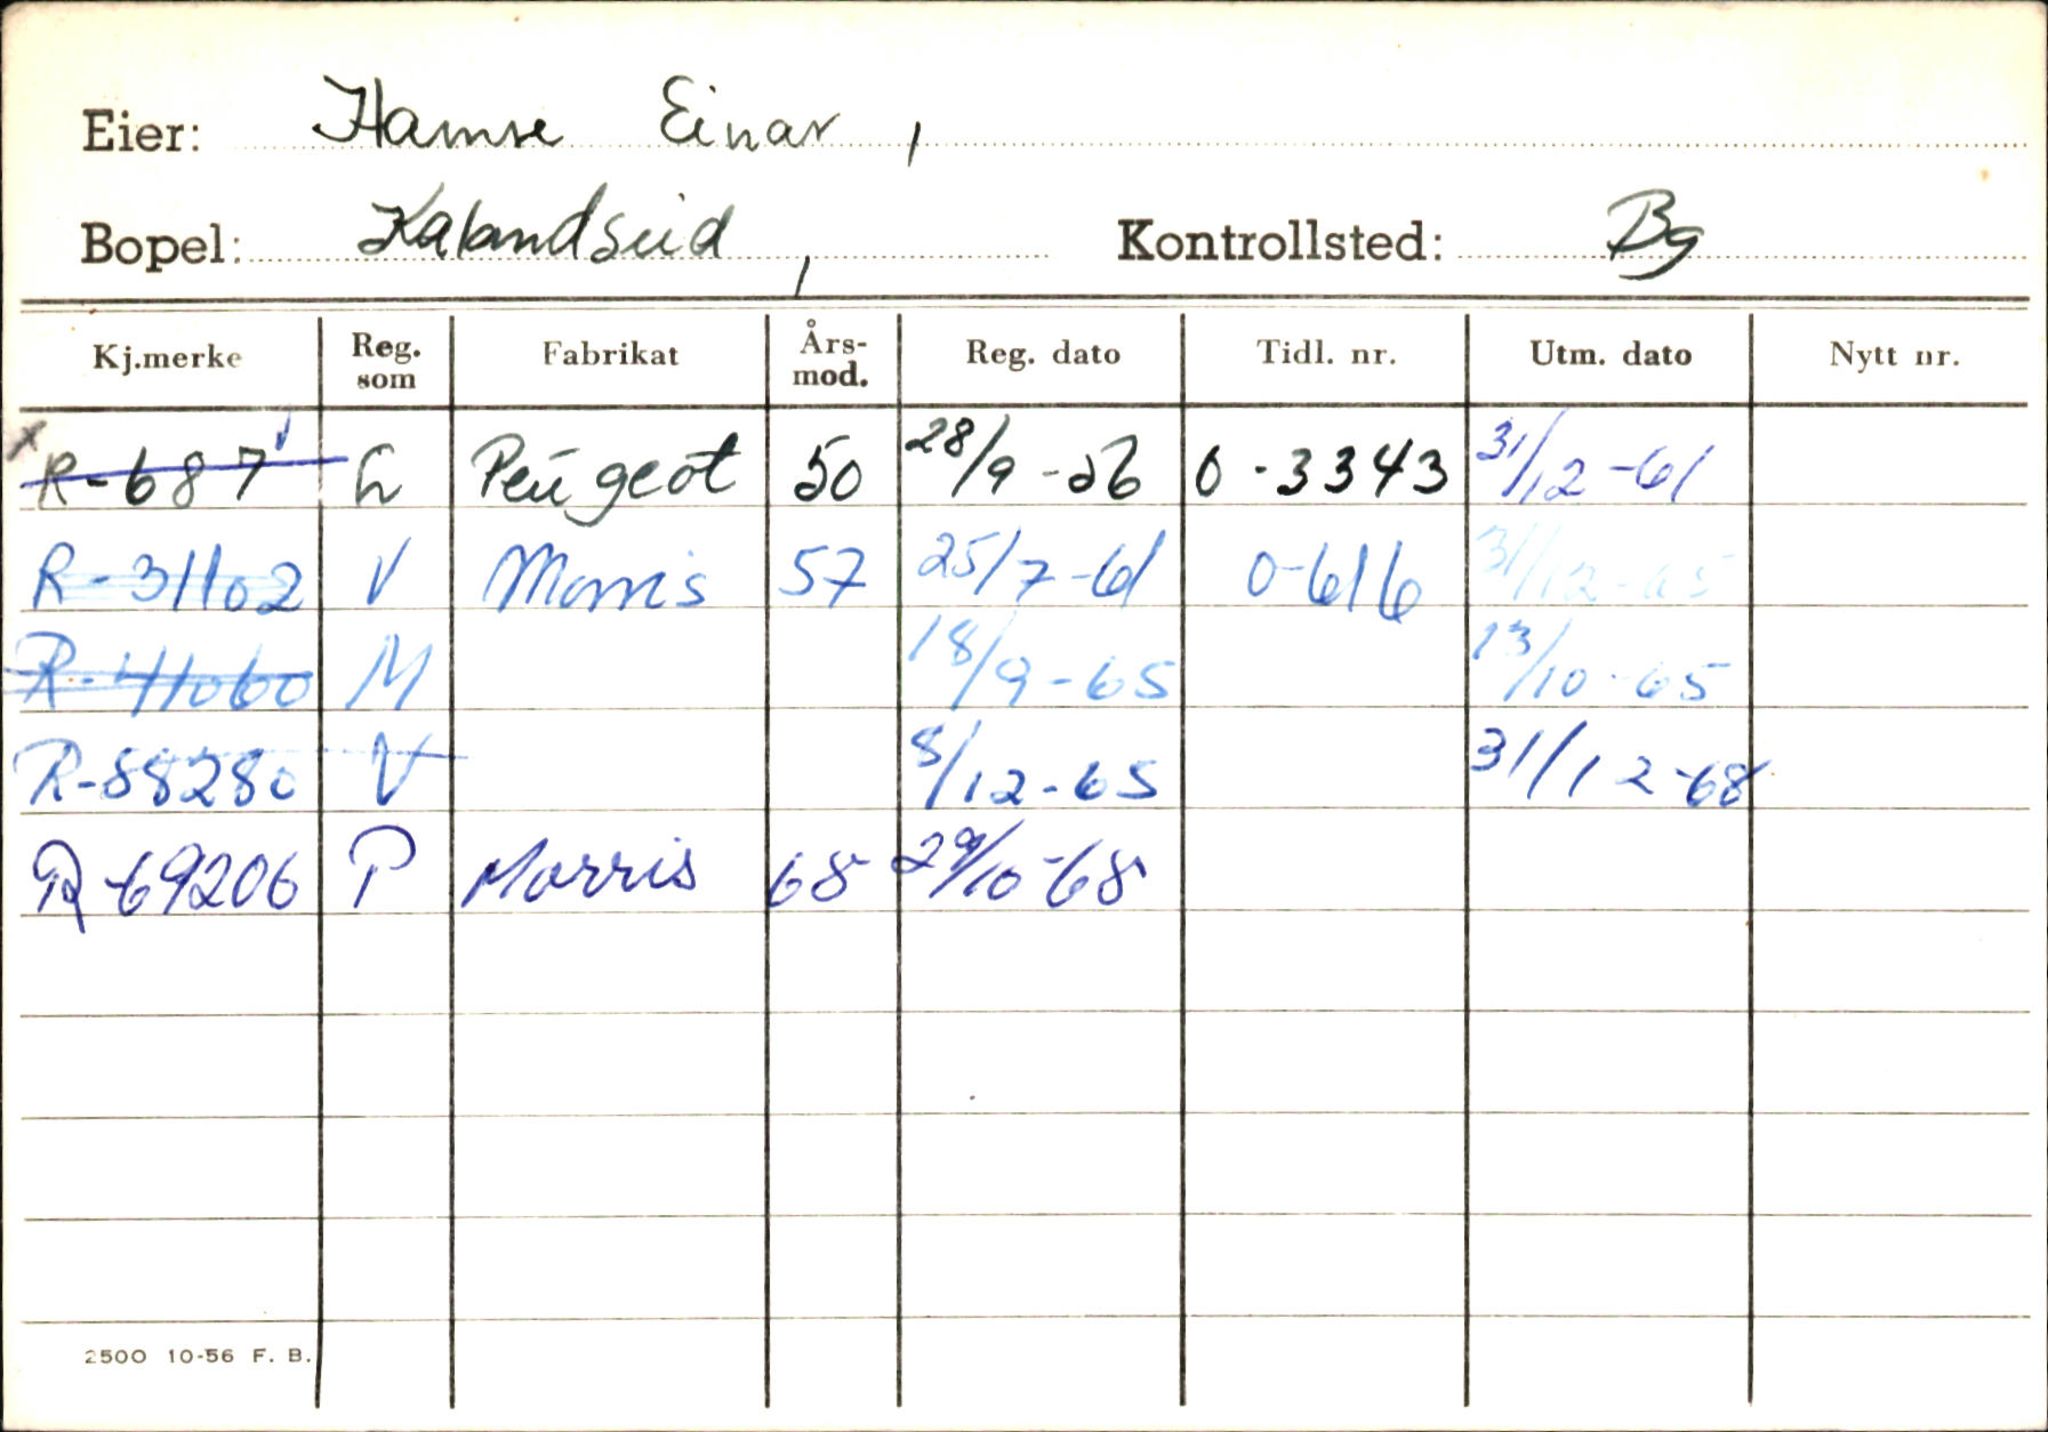 Eier: Hamre Einar,
Bopel: Kalandseid, Kontrollsted: Bg
Kj.merke Reg. som Fabrikat Års-mod. Reg. dato Tidl. nr. Utm. dato Nytt nr.
R-687 L Peugeot 50 28/9-56 O-3343 31/12-61
R-31102 V Morris 57 25/7-61 O-616 31/12-65
R-41060 M 18/9-65 13/10-65
R-88280 V 8/12-65 31/12-68
R-69206 P Morris 68 29/10-68
2500 10-56 F. B.